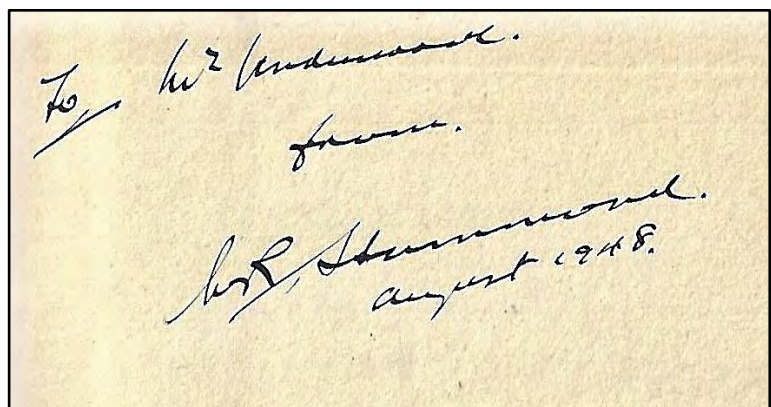 To Mr Underwood.
from.
W R Hammond.
August 1948.